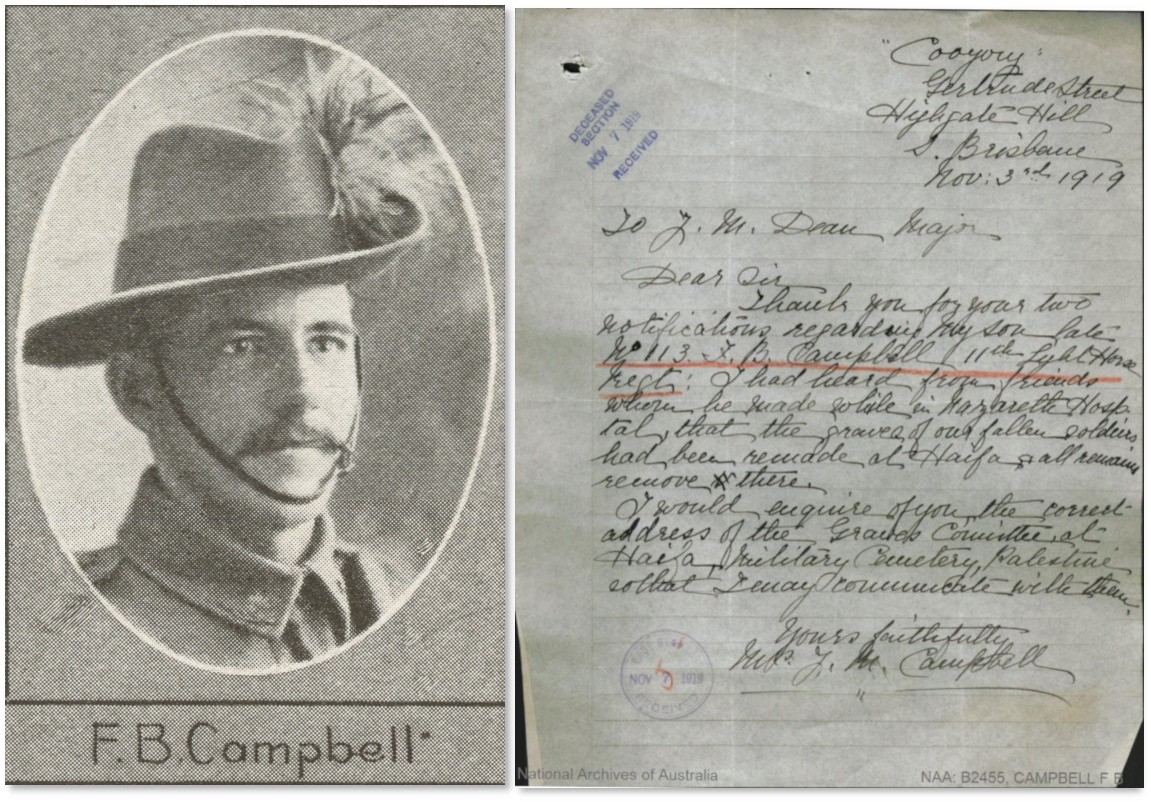 F.B. Campbell
"Cooyory"
Gertrude Street
Highgate Hill
S. Brisbane
Nov: 3rd 1919
DECEASED
SECTION
NOV 7 1919
RECEIVED
To J. M. Dean Major
Dear Sir
Thank you for your two
notifications regarding my son late
No 113. F. B. Campbell 11th Light Horse
Regt: I had heard from friends
whom he made while in Nazareth Hospi
tal, that the graves of our fallen soldiers
had been remade at Haifa & all remains
remove there.
I would enquire of you the correct
address of the Graves Comittee, at
Haifa, Military Cemetery, Palestine
so that I may communicate with them.
Yours faithfully
Mrs. J. M. Campbell
NOV 7 1919
RECEIVED
National Archives of Australia
NAA: B2455, CAMPBELL F B